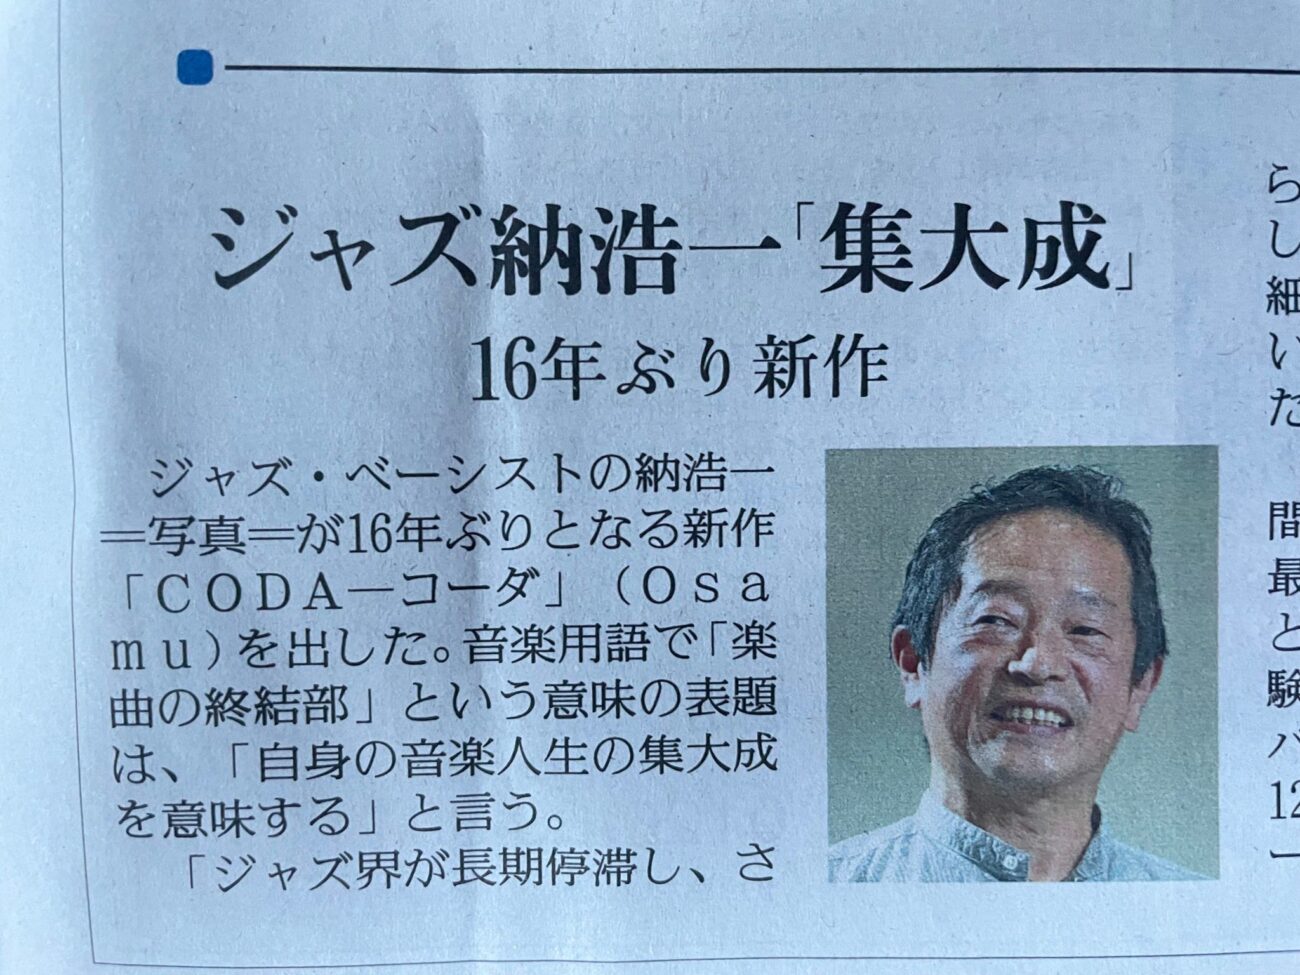 ジャズ納浩一「集大成」
16年ぶり新作
ジャズ・ベーシストの納浩一
＝写真＝が16年ぶりとなる新作
「ＣＯＤＡ―コーダ」（Ｏｓａ
ｍｕ）を出した。音楽用語で「楽
曲の終結部」という意味の表題
は、「自身の音楽人生の集大成
を意味する」と言う。
「ジャズ界が長期停滞し、さ
ら
し
細
い
た
間
最
と
験
バ
12
ー